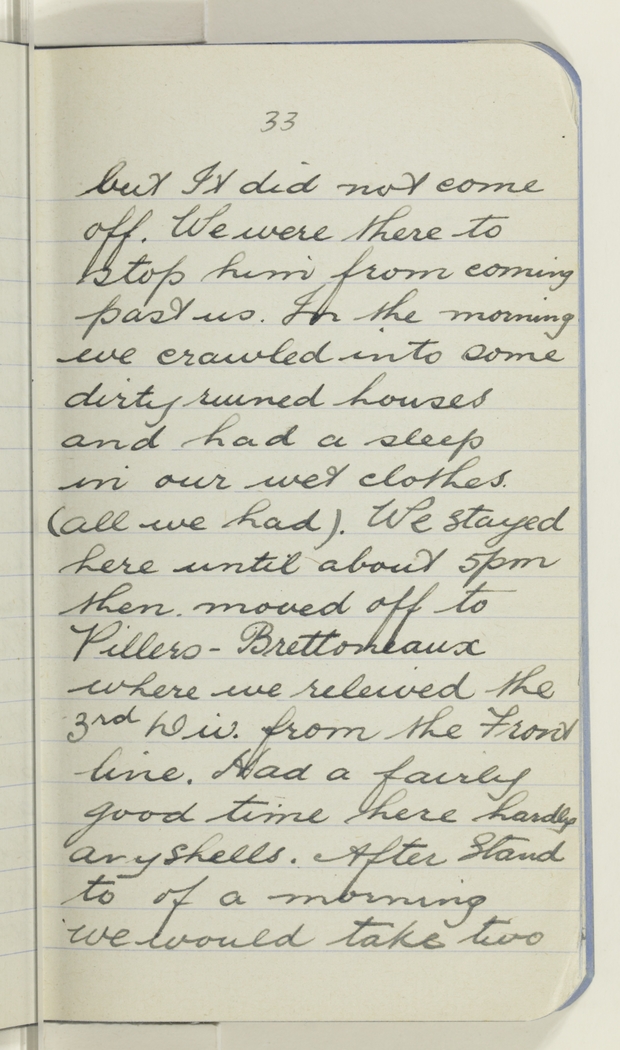 33
but It did not come
off. We were there to
stop him from coming
past us. In the morning
we crawled into some
dirty ruined houses
and had a sleep
in our wet clothes.
(all we had). We stayed
here until about 5pm
then. moved off to
Villers-Brettoneaux
where we releived the
3rd Div. from the Front
line. Had a fairly
good time here hardly
any shells. After Stand
to of a morning
we would take two